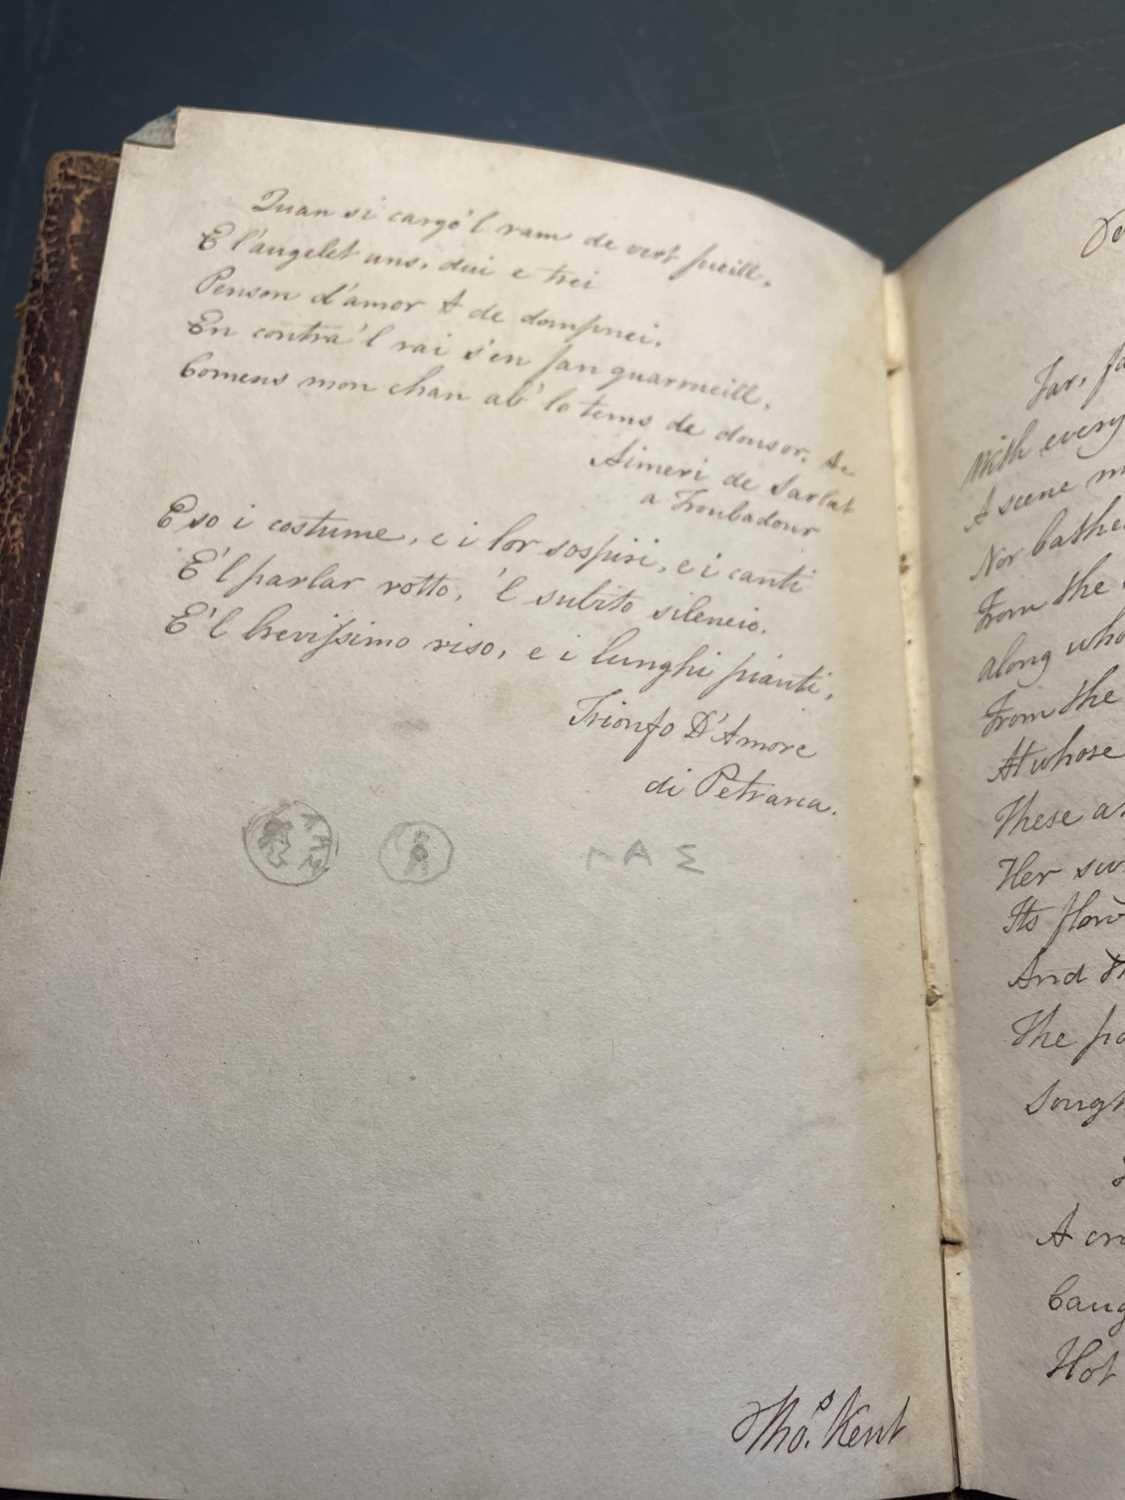 Quan si cargo'l ram de vert fueill,
E l'augelet uns, dui e trei
Penson d'amor & de dompnei,
En contra'l rai s'en fan quarmeill,
Comens mon chan ab'lo tems de dousor, &c
Aimeri de Sarlat
a Troubadour
E so i costume, e i lor sospiri, e i canti
E'l parlar rotto, 'l subito silencio.
E'l brevissimo riso, e i lunghi pianti,
Trionfo D'Amore
di Petrarca.
ΓΑΣ
Thos. Kent
Far,
With every
A scene
Nor bathe
From the
Along who
From the
At whose
These
Her
Its flow
And
The
Sough
A
Caug
Hot